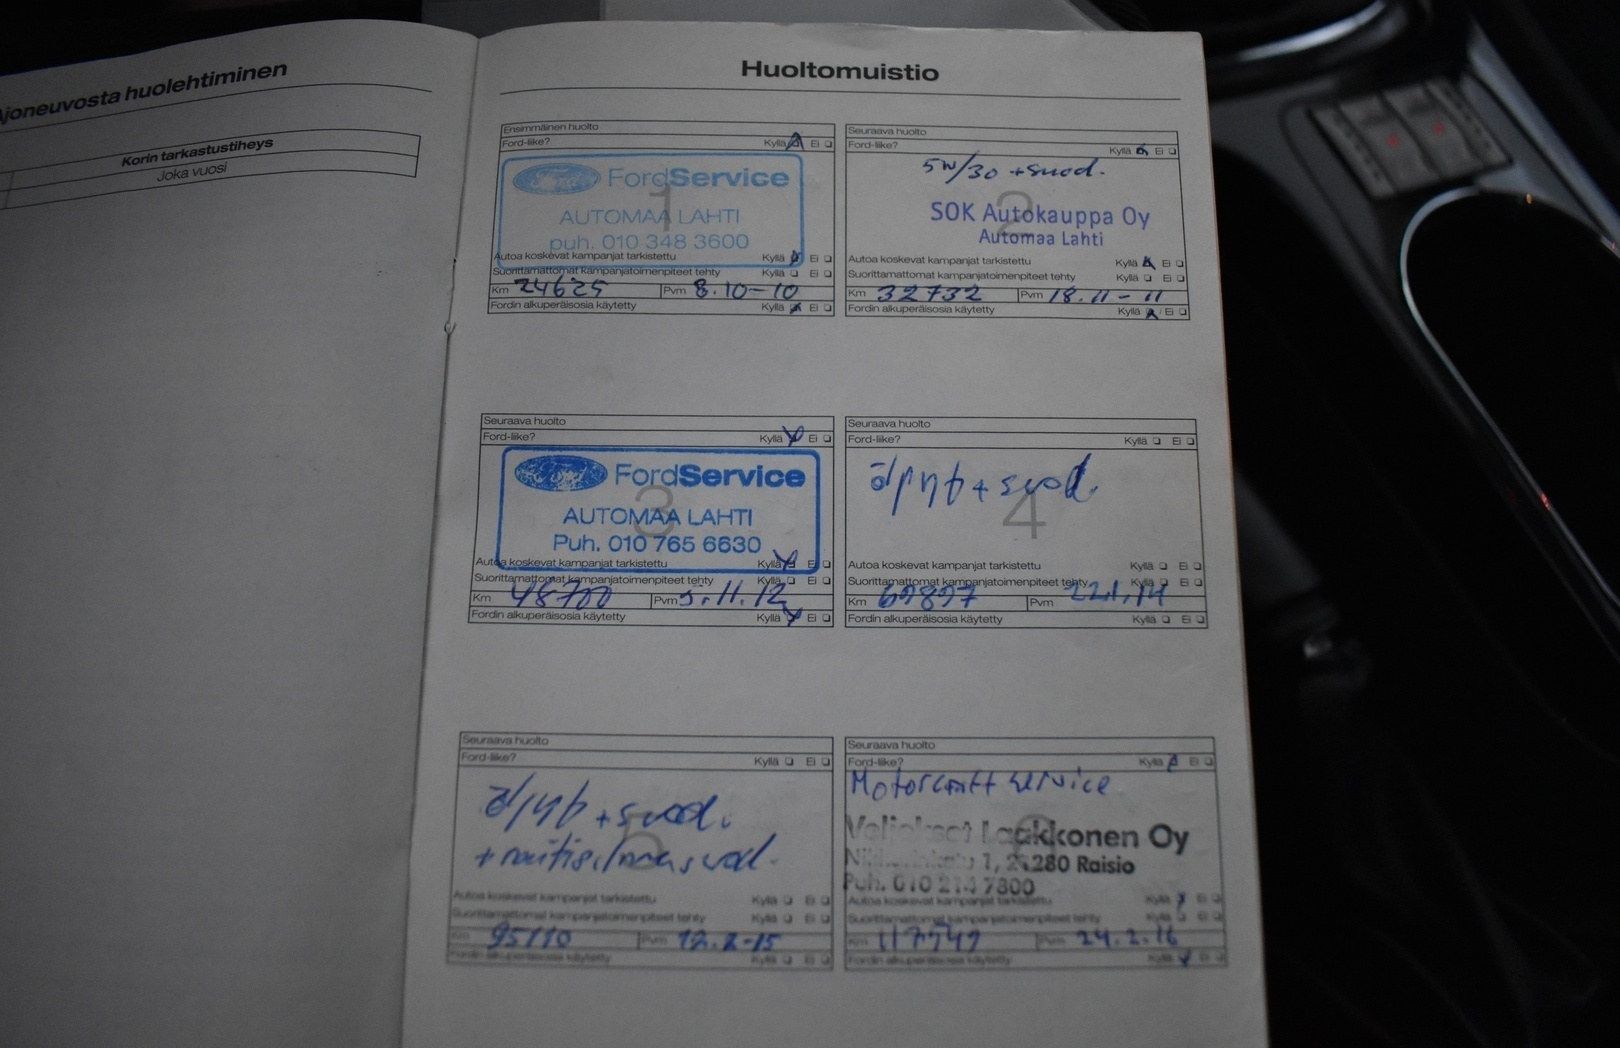 Ajoneuvosta huolehtiminen
Korin tarkastustiheys
Joka vuosi
Huoltomuistio
Ensimmäinen huolto
Ford-liike? Kyllä Ei
1
Ford FordService
AUTOMAA LAHTI
puh. 010 348 3600
Autoa koskevat kampanjat tarkistettu Kyllä Ei
Suorittamattomat kampanjatoimenpiteet tehty Kyllä Ei
Km 24625 Pvm 8.10-10
Fordin alkuperäisosia käytetty Kyllä Ei
Seuraava huolto
Ford-liike? Kyllä Ei
5W/30 +suod.
2
SOK Autokauppa Oy
Automaa Lahti
Autoa koskevat kampanjat tarkistettu Kyllä Ei
Suorittamattomat kampanjatoimenpiteet tehty Kyllä Ei
Km 32732 Pvm 18.11-11
Fordin alkuperäisosia käytetty Kyllä Ei
Seuraava huolto
Ford-liike? Kyllä Ei
3
Ford FordService
AUTOMAA LAHTI
Puh. 010 765 6630
Autoa koskevat kampanjat tarkistettu Kyllä Ei
Suorittamattomat kampanjatoimenpiteet tehty Kyllä Ei
Km 48700 Pvm 5.11.12
Fordin alkuperäisosia käytetty Kyllä Ei
Seuraava huolto
Ford-liike? Kyllä Ei
+ suod.
4
Autoa koskevat kampanjat tarkistettu Kyllä Ei
Suorittamattomat kampanjatoimenpiteet tehty Kyllä Ei
Km 69897 Pvm 22.1.14
Fordin alkuperäisosia käytetty Kyllä Ei
Seuraava huolto
Ford-liike? Kyllä Ei
+ suod.
5
+ raitisilmasuod.
Autoa koskevat kampanjat tarkistettu Kyllä Ei
Suorittamattomat kampanjatoimenpiteet tehty Kyllä Ei
Km 95110 Pvm 12.2-15
Fordin alkuperäisosia käytetty Kyllä Ei
Seuraava huolto
Ford-liike? Kyllä Ei
Motorcraft service
6
Veljekset Laakkonen Oy
1, 21280 Raisio
Puh. 010 214 7800
Autoa koskevat kampanjat tarkistettu Kyllä Ei
Suorittamattomat kampanjatoimenpiteet tehty Kyllä Ei
Km 117549 Pvm 24.2.16
Fordin alkuperäisosia käytetty Kyllä Ei